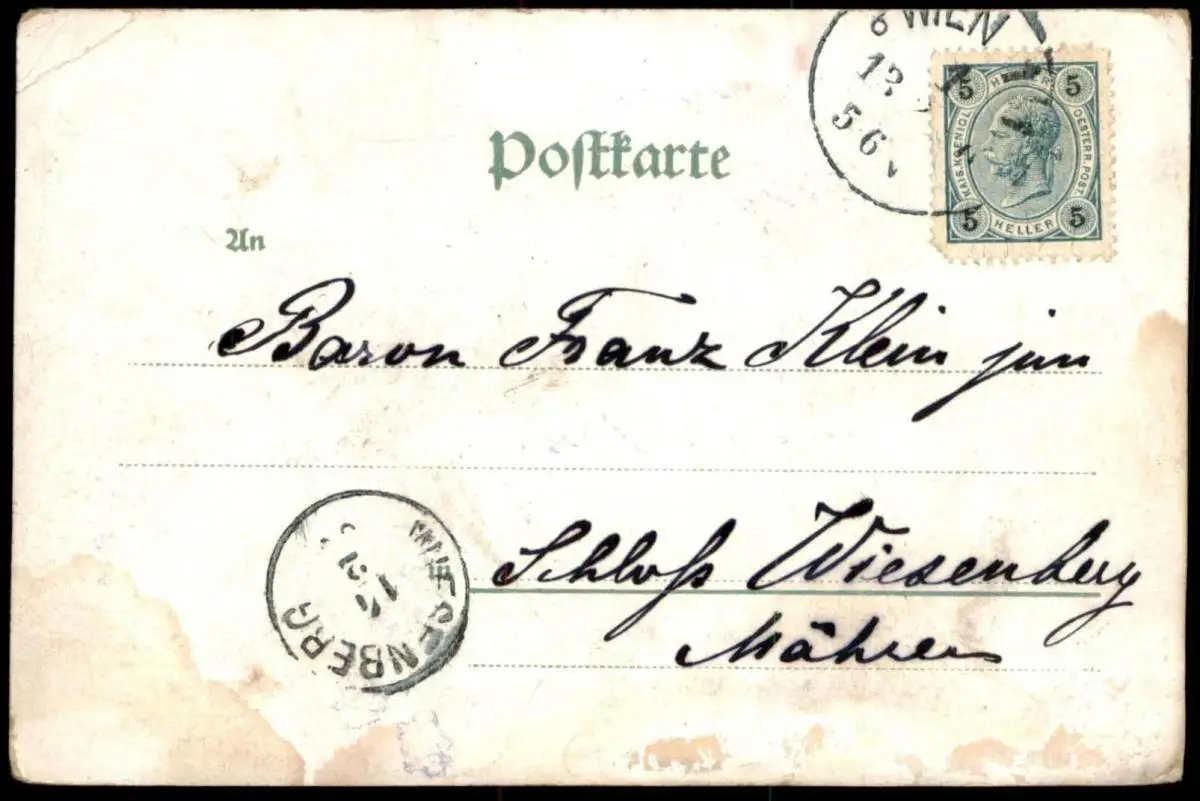 WIEN
5-6
5 HELLER 5
KAIS. KOENIGL. OESTERR. POST.
5 HELLER 5
Postkarte
An
Baron Franz Klein jun
Schloß Wiesenberg
Mähren
WIESENBERG